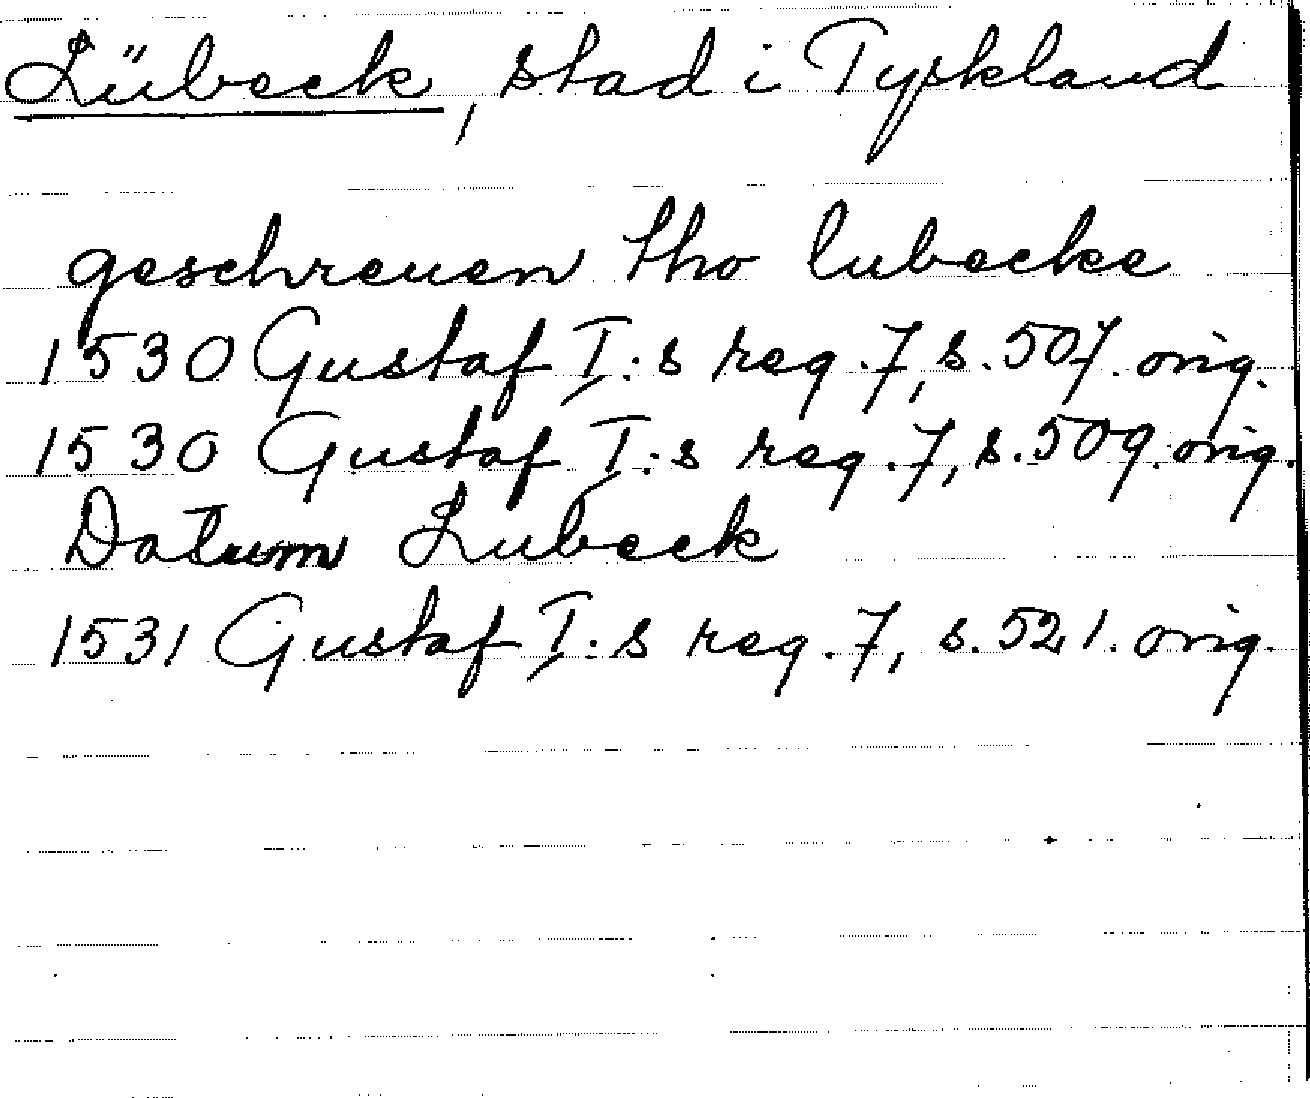 Lübeck, stad i Tyskland
geschreuen tho lubecke
1530 Gustaf I:s reg. 7, s. 507. orig.
1530 Gustaf I:s reg. 7, s. 509. orig.
Datum Lubeck
1531 Gustaf I:s reg. 7, s. 521. orig.